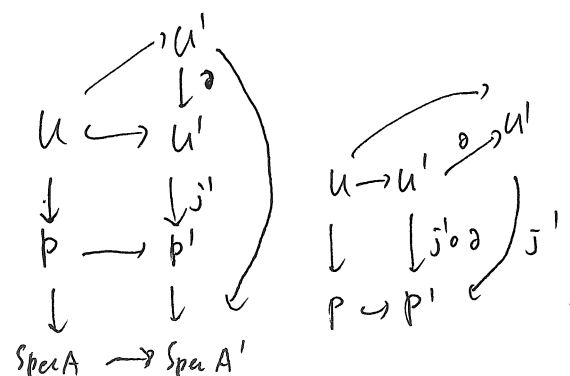 U'
∂
U U'
j'
P P'
Spec A Spec A'
U U' ∂ U'
j'∘∂ j'
P P'